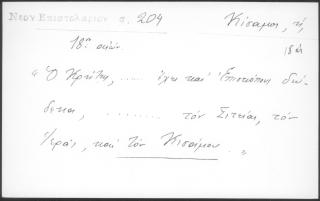 Νεον Επιστολαριον σ. 204
Κίσαμος, ἡ,
18ος αἰών.
18 αἰ
"Ὁ Κρήτης, ..... ἔχει καὶ Ἐπισκόπους δώ-
δεκα, ........ τὸν Σιτείας, τὸν
Ἱερᾶς, καὶ τὸν Κισάμου."